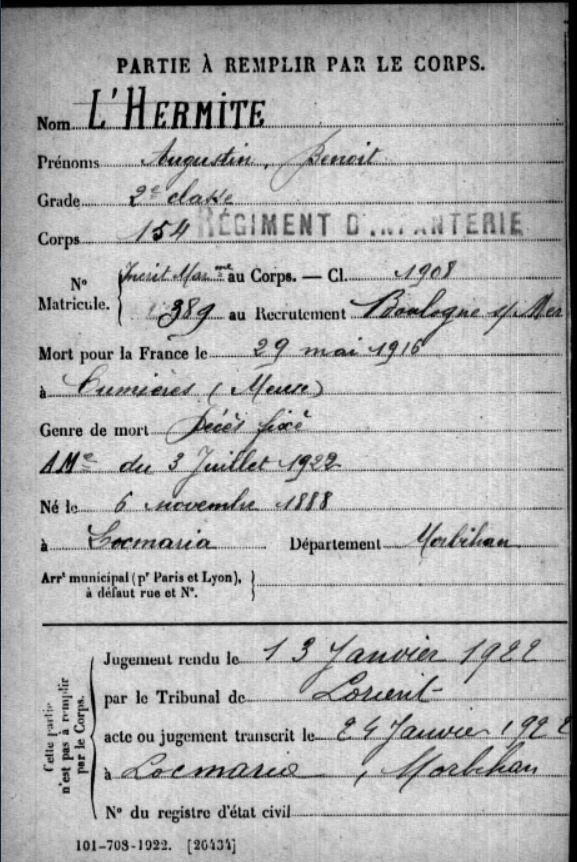 PARTIE À REMPLIR PAR LE CORPS.
Nom L'HERMITE
Prénoms Augustin, Benoit
Grade 2e classe
Corps 154 RÉGIMENT D'INFANTERIE
N° Matricule. { Inscrit Marme au Corps. — Cl. 1908
389 au Recrutement Boulogne s/ Mer
Mort pour la France le 29 mai 1916
à Cumières (Meuse)
Genre de mort Décès fixé
AMe du 3 Juillet 1922
Né le 6 novembre 1888
à Locmaria Département Morbihan
Arrt municipal (pr Paris et Lyon), }
à défaut rue et N°.
Cette partie n'est pas à remplir par le Corps.
Jugement rendu le 13 Janvier 1922
par le Tribunal de Lorient
acte ou jugement transcrit le 24 Janvier 1922
à Locmaria, Morbihan
N° du registre d'état civil
101-708-1922. [26434]